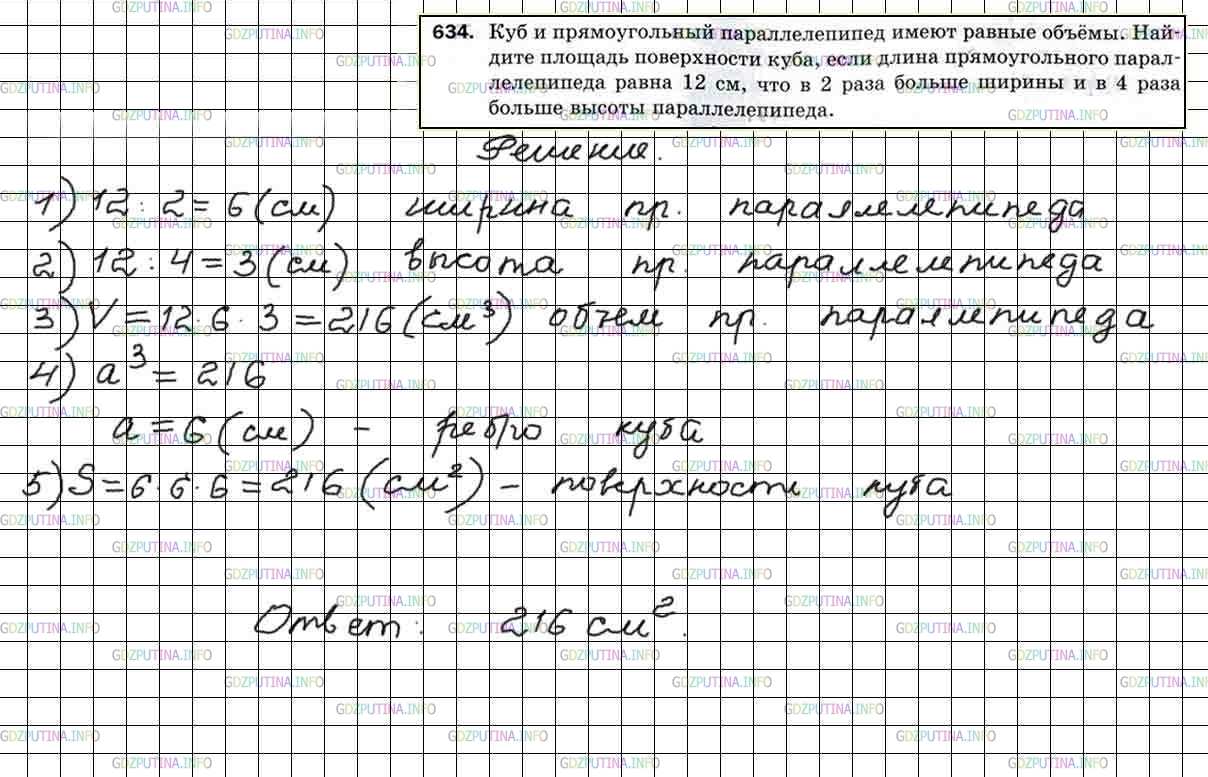 634. Куб и прямоугольный параллелепипед имеют равные объёмы. Най-
дите площадь поверхности куба, если длина прямоугольного парал-
лелепипеда равна 12 см, что в 2 раза больше ширины и в 4 раза
больше высоты параллелепипеда.
Решение.
1) 12 : 2 = 6 (см) ширина пр. параллелепипеда
2) 12 : 4 = 3 (см) высота пр. параллелепипеда
3) V = 12 · 6 · 3 = 216 (см³) объем пр. параллепипеда
4) a³ = 216
a = 6 (см) - ребро куба
5) S = 6 · 6 · 6 = 216 (см²) - поверхности куба
Ответ: 216 см².
GDZPUTINA.INFO